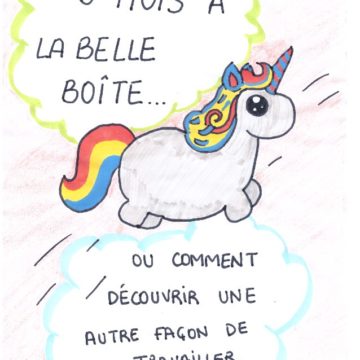 6 MOIS À
LA BELLE
BOÎTE...
OU COMMENT
DÉCOUVRIR UNE
AUTRE FAÇON DE
TRAVAILLER